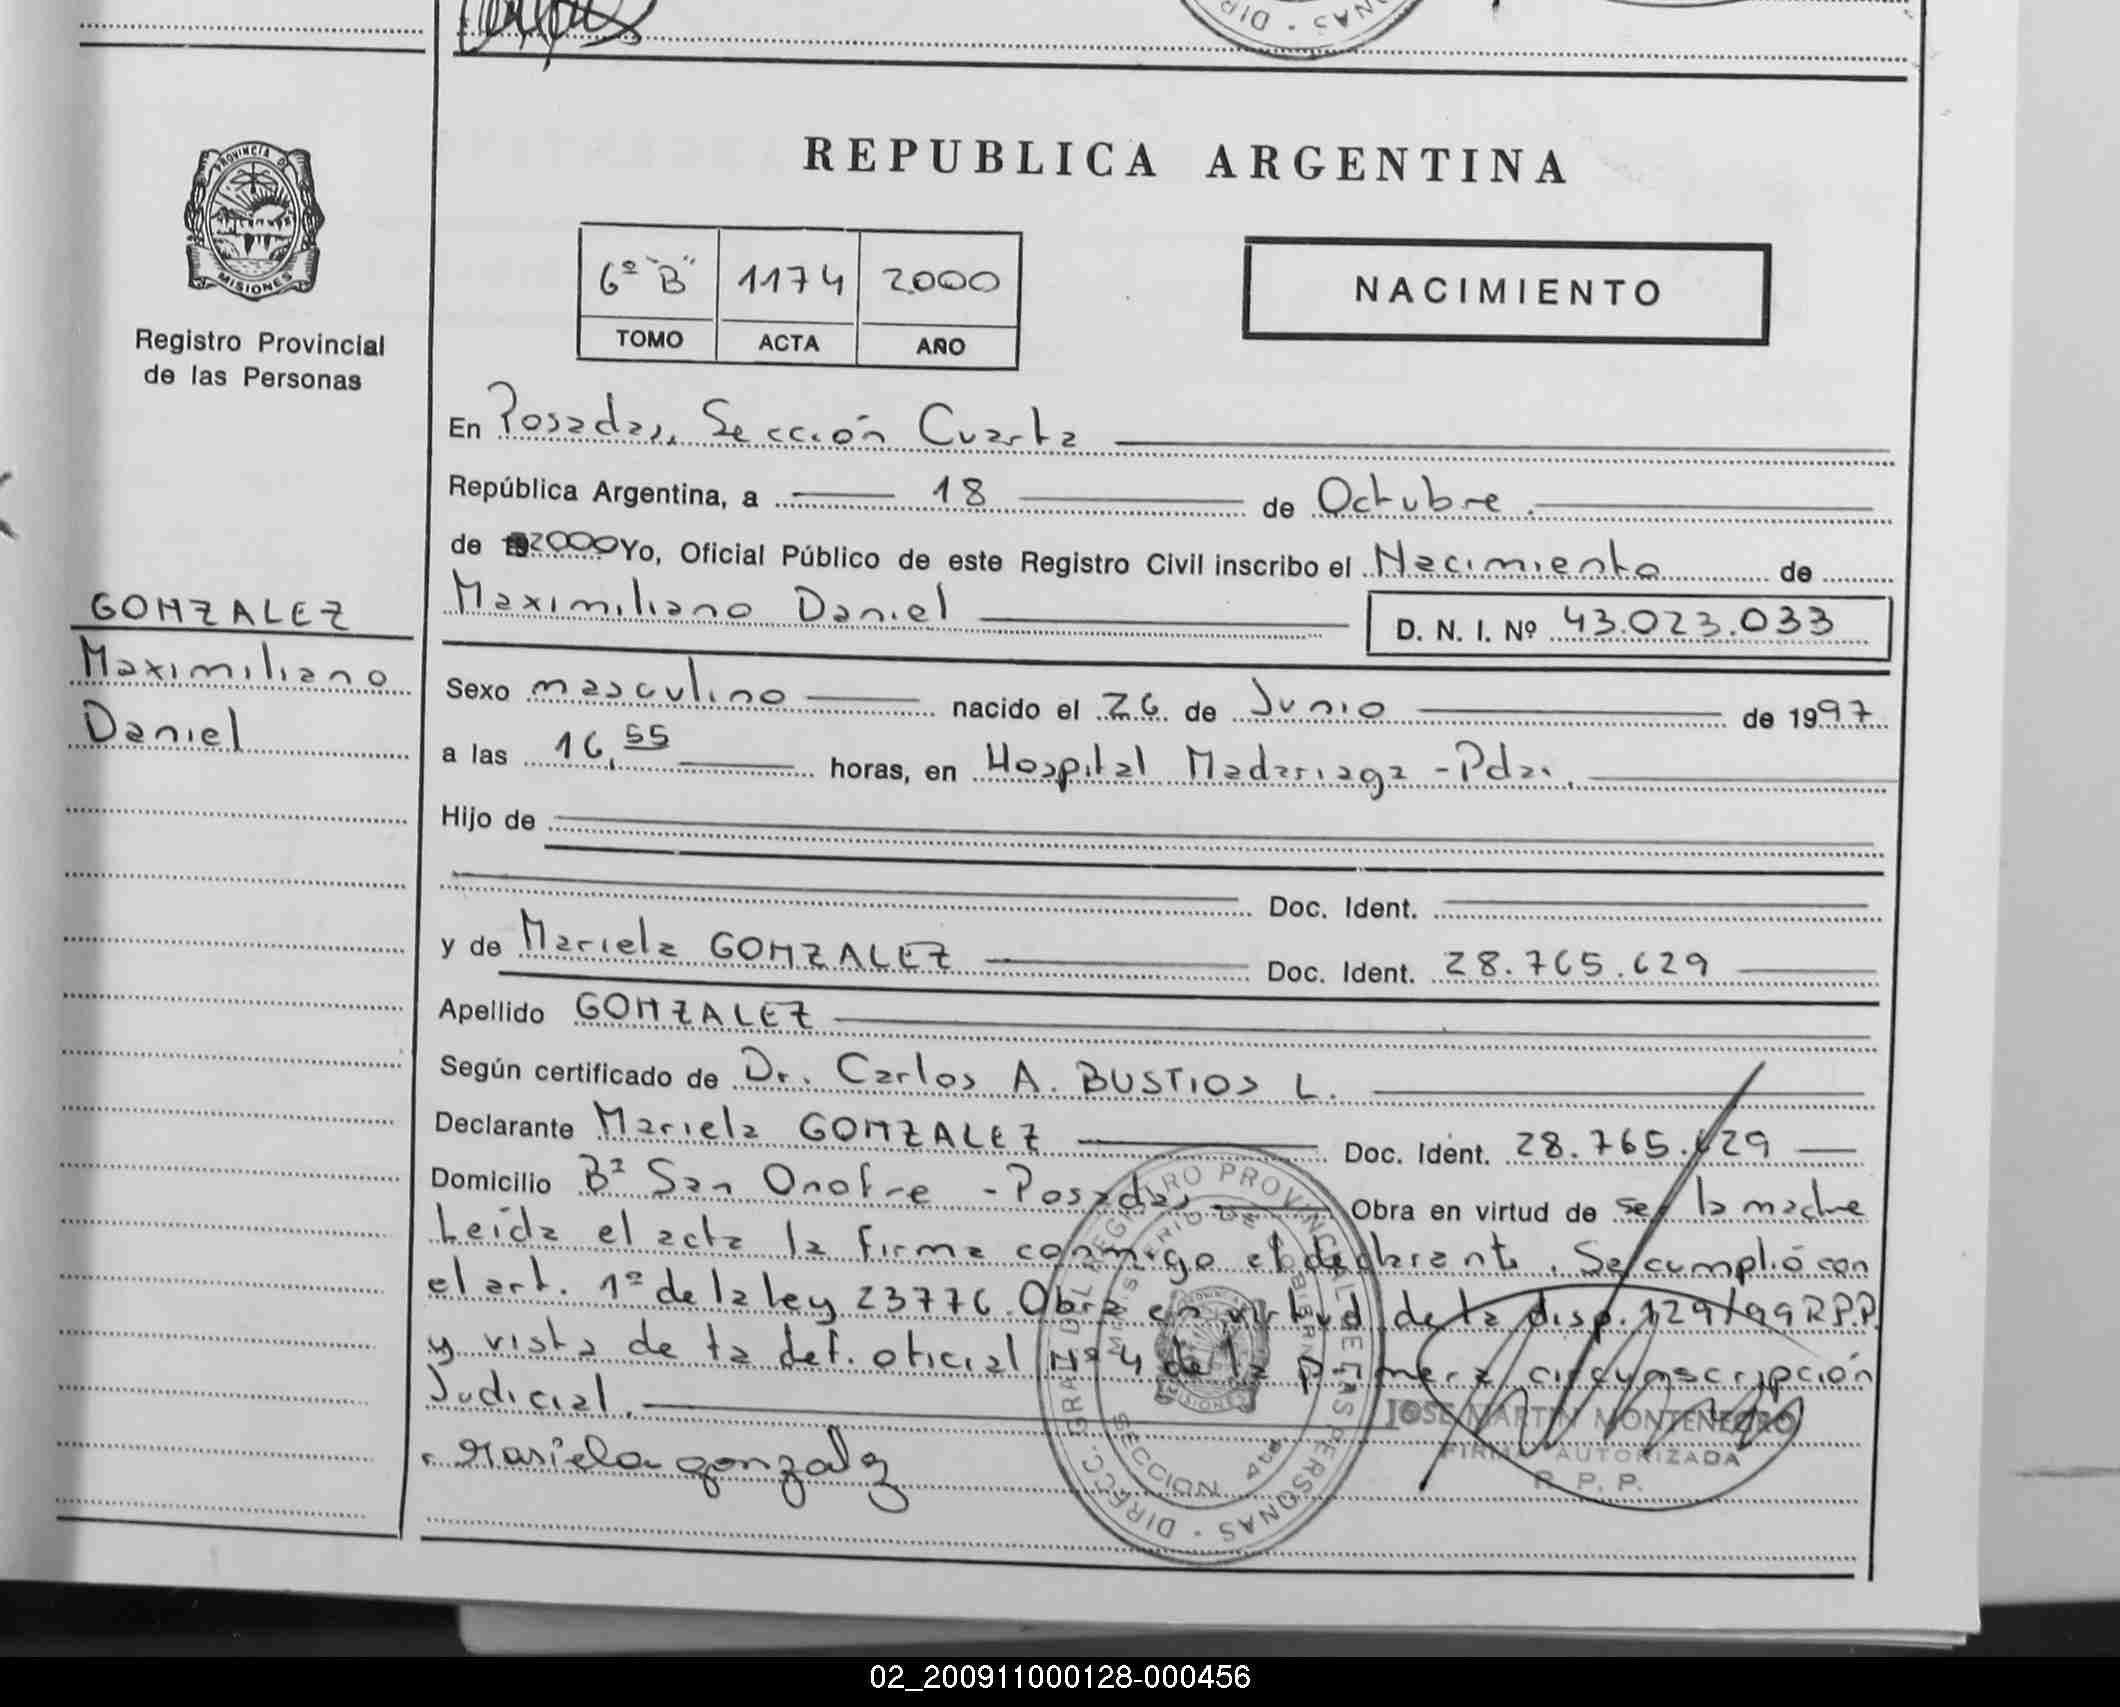 REPUBLICA ARGENTINA
PROVINCIA DE
MISIONES
Registro Provincial
de las Personas
6º "B" 1174 2000
TOMO ACTA AÑO
NACIMIENTO
En Posadas, Sección Cuarta
República Argentina, a 18 de Octubre
de 2000 Yo, Oficial Público de este Registro Civil inscribo el Nacimiento de
Maximiliano Daniel D. N. I. Nº 43.023.033
GONZALEZ
Maximiliano
Daniel
Sexo masculino nacido el 26 de Junio de 1997
a las 16,55 horas, en Hospital Madariaga - Pdas.
Hijo de
Doc. Ident.
y de Mariela GONZALEZ Doc. Ident. 28.765.629
Apellido GONZALEZ
Según certificado de Dr. Carlos A. BUSTIOS L.
Declarante Mariela GONZALEZ Doc. Ident. 28.765.629
Domicilio Bº San Onofre - Posadas Obra en virtud de ser la madre
Leída el acta la firma conmigo el declarante. Se cumplió con
el art. 1º de la ley 23776. Obra en virtud de la disp. 129/99 R.P.P.
y vista de la def. oficial Nº 4 de la primera circunscripción
Judicial.
Mariela gonzalez
JOSE MARTIN MONTENEGRO
FIRMA AUTORIZADA
R. P. P.
DIRECC. GRAL DEL REGISTRO PROVINCIAL DE LAS PERSONAS
MINISTERIO DE GOBIERNO
SECCION 4ta
02_200911000128-000456